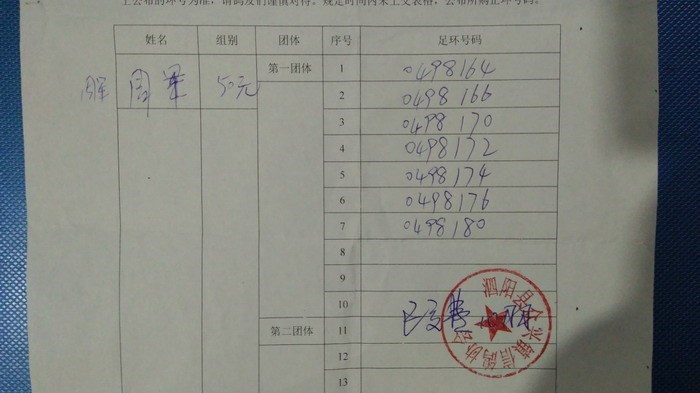 上公布的环号为准，请鸽友们谨慎对待。规定时间内未上交表格，公布所购证环号码。
姓名 组别 团体 序号 足环号码
周军 50元 第一团体 1 0498164
2 0498166
3 0498170
4 0498172
5 0498174
6 0498176
7 0498180
8
9
10
第二团体 11 已交费
12
13
泗阳县众兴镇信鸽协会